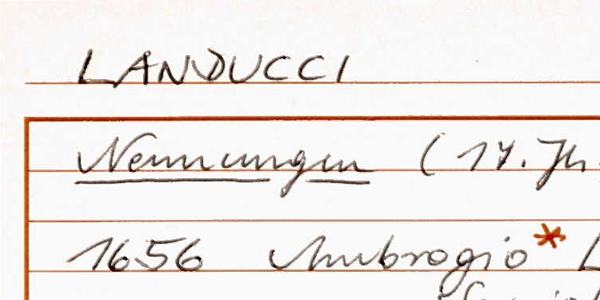 LANDUCCI
Nennungen (17. Jh.
1656 Ambrogio* L